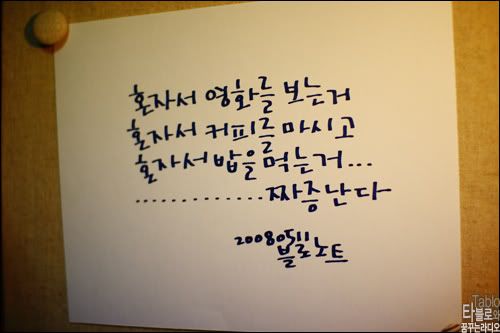 혼자서 영화를 보는거
혼자서 커피를 마시고
혼자서 밥을 먹는거...
.............짜증난다
20080511
블로노트
Tablo
타블로의
꿈꾸는라디오